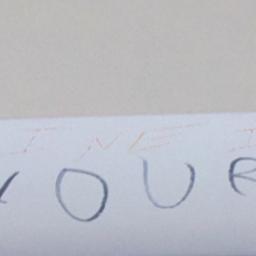 INE I
YOUR